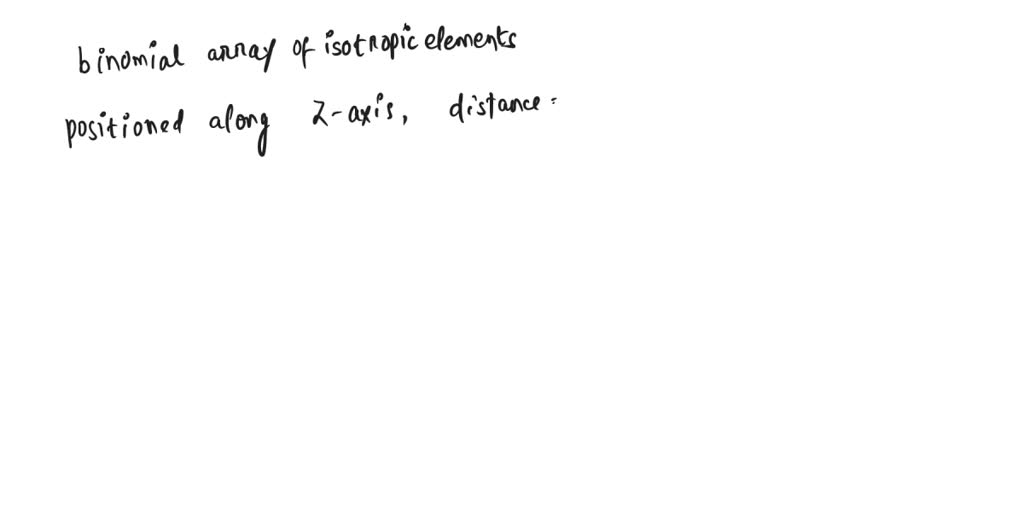 binomial array of isotropic elements
positioned along z-axis, distance =